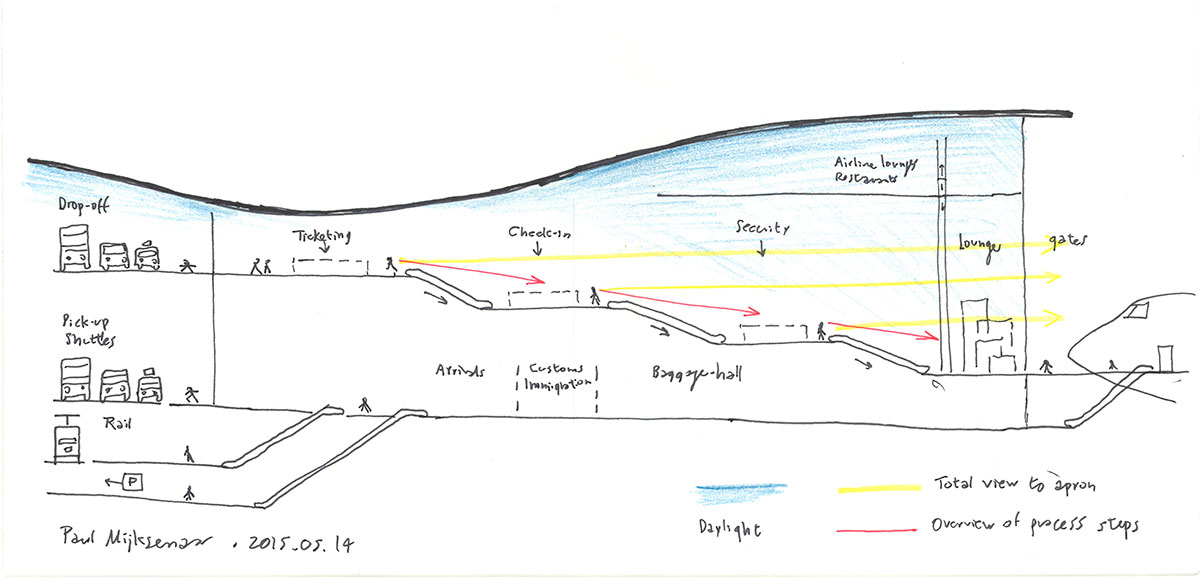 Airline lounge
Restaurants
Drop-off
Ticketing
Check-in
Security
Lounge
gates
Pick-up
Shuttles
Arrivals
Customs
Immigration
Baggage-hall
Rail
P
Total view to apron
Daylight
Overview of process steps
Paul Mijksenaar . 2015.05.14